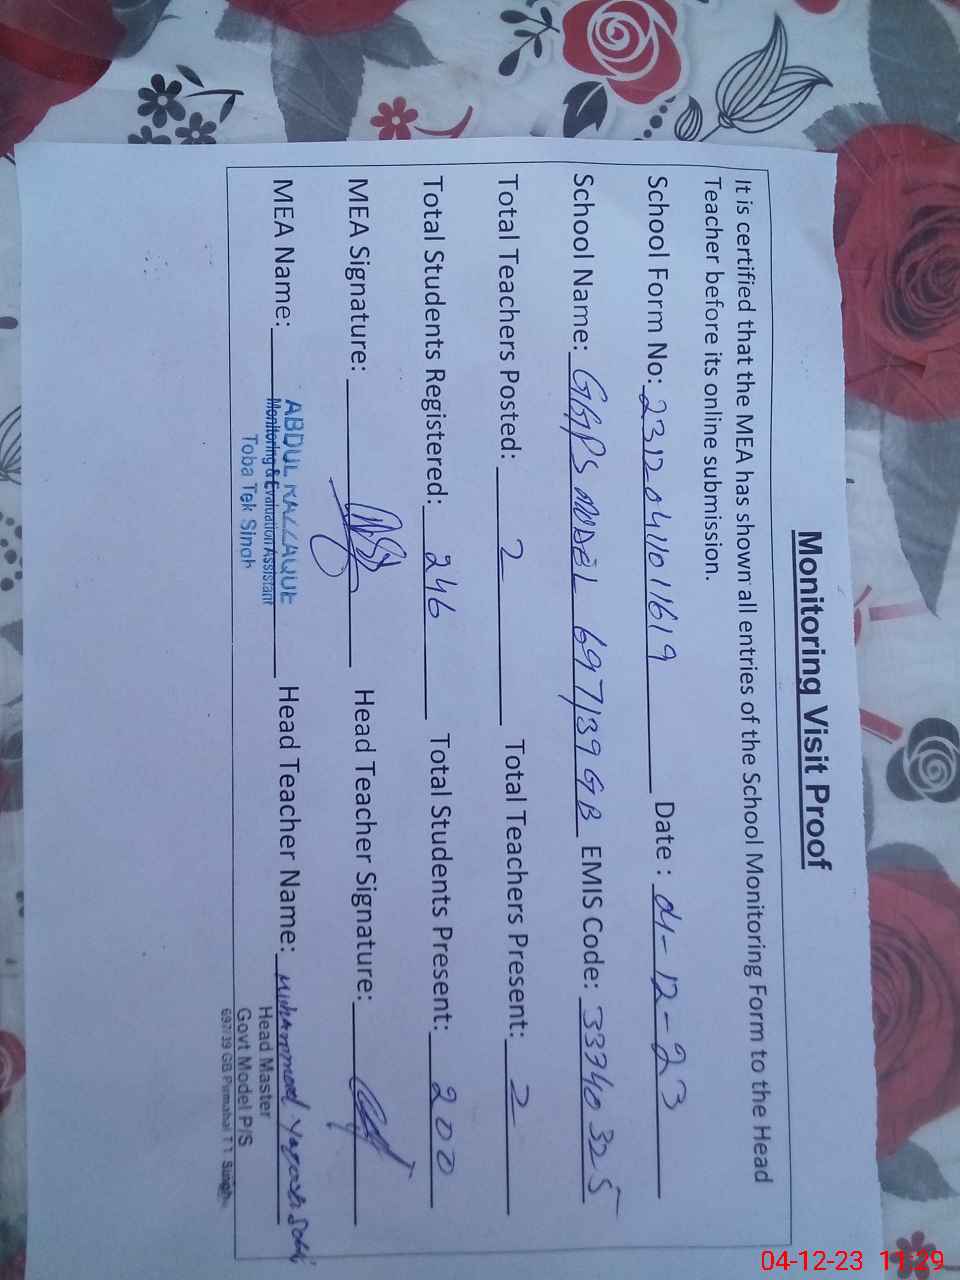 Monitoring Visit Proof
It is certified that the MEA has shown all entries of the School Monitoring Form to the Head
Teacher before its online submission.
School Form No: 23120411011619 Date : 01-12-23
School Name: GGPS MODEL 697/39 GB EMIS Code: 33740325
Total Teachers Posted: 2 Total Teachers Present: 2
Total Students Registered: 246 Total Students Present: 200
MEA Signature: Head Teacher Signature:
MEA Name: ABDUL RAZZAQUE Head Teacher Name: Muhammad
Monitoring & Evaluation Assistant
Toba Tek Singh
Head Master
Govt Model P/S
697/39 GB Pirmahal T.T. Singh
04-12-23 11:29